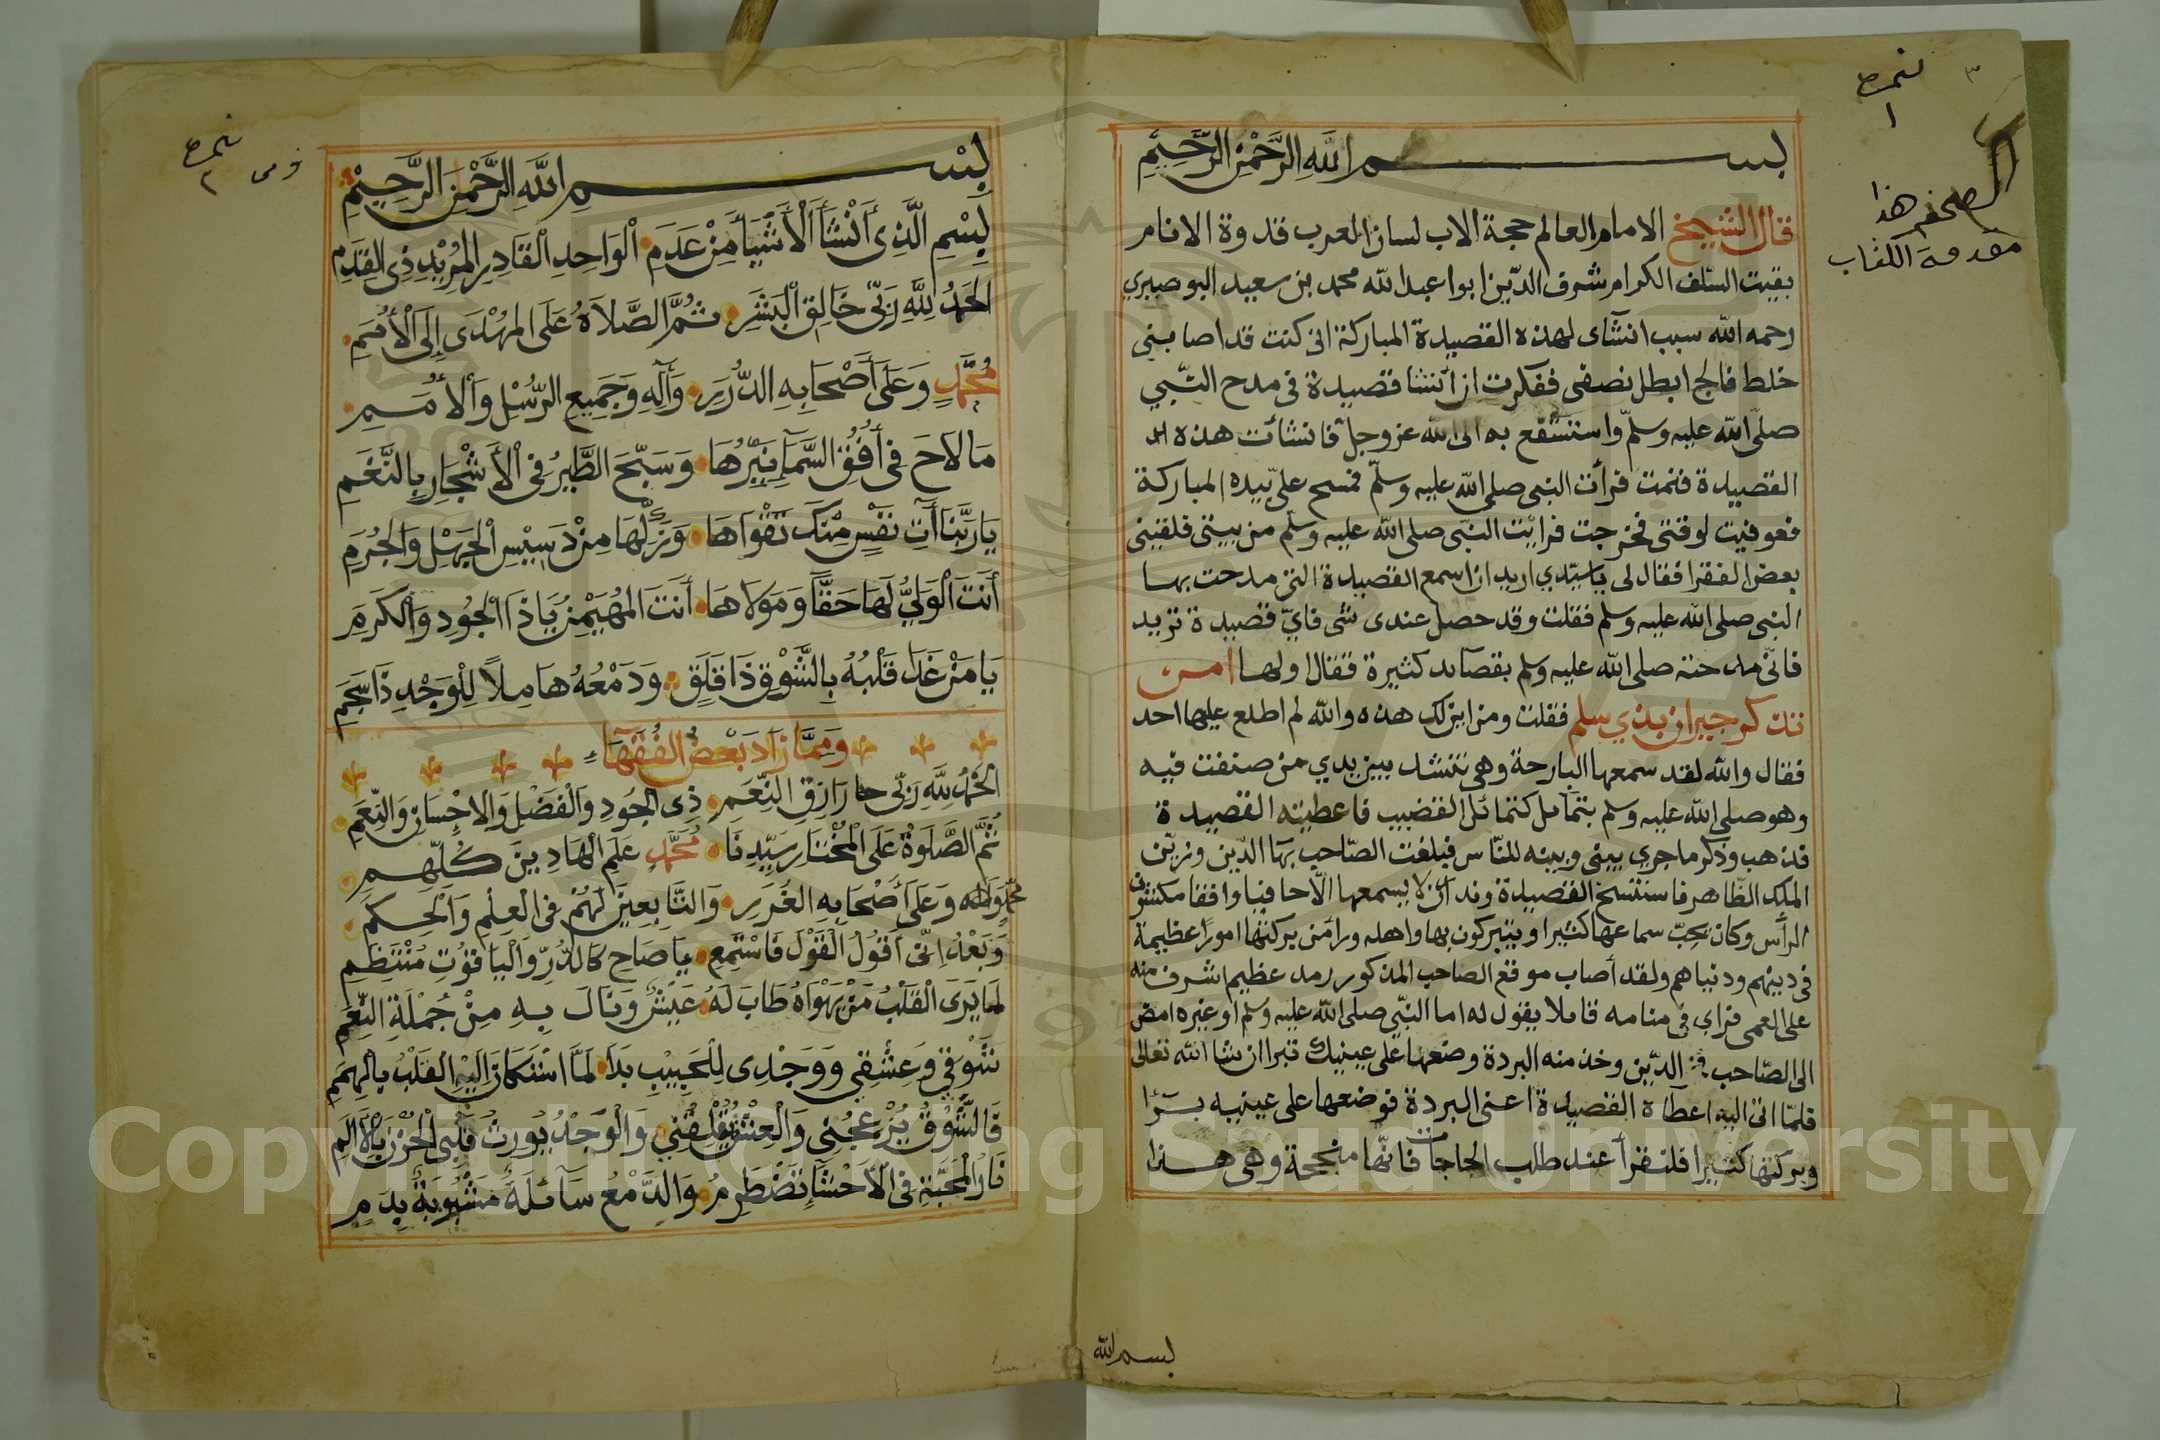 نمره
١
٣
الصحفه هذا
مقدمة الكتاب
بســـم الله الرحمن الرحيم
قال الشيخ الامام العالم حجة الاب لسان العرب قدوة الانام
بقيت السلف الكرام شرف الدّين ابوا عبد الله محمد بن سعيد البوصيري
رحمه الله سبب انشآى لهذه القصيدة المباركة انى كنت قد اصابنى
خلط فالج ابطل نصفى ففكرت ان أنشا قصيدة فى مدح النّبي
صلى الله عليه وسلّم واستشفع به الى الله عز وجل فانشأت هذه
القصيدة فنمت فرأت النبى صلى الله عليه وسلّم فمسح علىّ بيده المباركة
فعوفيت لوقتى فخرجت فرائت النبّى صلى الله عليه وسلّم من بيتى فلقينى
بعض الفقرا فقال لى ياسيّدي اريد ان اسمع القصيدة التى مدحت بها
النبى صلى الله عليه وسلم فقلت وقد حصل عندى شى فايّ قصيدة تريد
فانّى مدحته صلى الله عليه وسلم بقصآيد كثيرة فقال اولها امن
تذكر جيران بذي سلم فقلت ومن اين لك هذه والله لم اطلع عليها احد
فقال والله لقد سمعها البارحة وهى تنشد بين يدي من صنفت فيه
وهو صلى الله عليه وسلم يتمآيل كتمائل القضيب فاعطيته القصيدة
فذهب وذكر ماجري بينى وبينه للنّاس فبلغت الصّاحب بهآ الدّين وزيّن
الملك الظّاهر فاستنسخ القصيدة ونذر ان لا يسمعها الّا حافيا واقفا مكشوف
الرأس وكان يحبّ سماعها كثيرا ويتبركون بها واهله ورا من بركتها امورًا عظيمة
فى دينهم ودنياهم ولقد أصاب موقع الصاحب المذكور رمد عظيم اشرف منه
على العمى فراى فى منامه قايلا يقول له اما النّبي صلى الله عليه وسلم او غيره امض
الى الصّاحب الدّين وخذ منه البردة وضعها على عينيك تبرا ان شا الله تعالى
فلمّا اتى اليه اعطاه القصيدة اعنى البردة فوضعها على عينيه بـرا
وبركتها كثيرا فلتقرأ عند طلب الحاجات فانّها منجحة وهى هـذا
بسم الله
نمره
٢
بِسْـــمِ اللهِ الرَّحْمٰنِ الرَّحِيْمِ
بِسْمِ الَّذِى أَنْشَأَ الْأَشْيَأَ مِنْ عَدَمِ الْوَاحِدِ الْقَادِرِ الْمُرِيْدِ ذِى الْقِدَمِ
الْحَمْدُ لِلَّهِ رَبِّى خَالِقِ الْبَشَرِ ثُمَّ الصَّلَاةُ عَلَى الْمَهْدَى إِلَى الْأُمَمِ
مُحَمَّدٍ وَعَلَى أَصْحَابِهِ الدُّرَرِ وَآلِهِ وَجَمِيعِ الرُّسْلِ وَالْأُمَــمِ
مَا لَاحَ فِى أُفُقِ السَّمَآءِ نَيِّرُهَا وَسَبَّحَ الطَّيْرُ فِى الْأَشْجَارِ بِالنَّغَمِ
يَا رَبَّنَا آتِ نَفْسٍ مِنْكَ تَقْوَاهَا وَزَكِّهَا مِنْ دَسِيْسِ الْجَهْلِ وَالْجُرَمِ
أَنْتَ الْوَلِيُّ لَهَا حَقًّا وَمَوْلَاهَا أَنْتَ الْمُهَيْمِنُ يَا ذَا الْجُودِ وَالْكَرَمِ
يَا مَنْ غَدَا قَلْبُهُ بِالشَّوْقِ ذَا قَلَقٍ وَدَمْعُهُ هَامِلًا لِلْوَجْدِ ذَا سَجَمِ
وَمِمَّا زَادَ بَعْضُ الْفُقَهَآءِ
الْحَمْدُ لِلَّهِ رَبِّى رَازِقِ النِّعَمِ ذِى الْجُودِ وَالْفَضْلِ وَالْاِحْسَانِ وَالنِّعَمِ
ثُمَّ الصَّلٰوةُ عَلَى الْمُخْتَارِ سَيِّدِنَا مُحَمَّدٍ عَلَمِ الْهَادِينَ كُلِّهِــمِ
محمد وآله وَعَلَى أَصْحَابِهِ الْغُرَرِ وَالتَّابِعِينَ لَهُمْ فِى الْعِلْمِ وَالْحِكَمِ
وَبَعْدُ اِنِّى أَقُولُ الْقَوْلَ فَاسْتَمِعِ يَا صَاحِ كَالدُّرِّ وَالْيَاقُوتِ مُنْتَظِمِ
لَمَا يَرَى الْقَلْبُ مَنْ يَهْوَاهُ طَابَ لَهُ عَيْشٌ وَنَالَ بِهِ مِنْ جُمْلَةِ النِّعَمِ
شَوْقِي وَعِشْقِي وَوَجْدِى لِلْحَبِيْبِ بَدَا لَمَّا اسْتَكَانَ اِلَيْهِ الْقَلْبُ بِالْهِمَمِ
فَالشَّوْقُ يُزْعِجُنِي وَالْعِشْقُ يُقْلِقُنِي وَالْوَجْدُ يُورِثُ قَلْبِى الْحُزْنَ بِالْأَلَمِ
نَارُ الْمَحَبَّةِ فِى الْأَحْشَآءِ تَضْطَرِمُ وَالدَّمْعُ سَآئِلَةٌ مَشْبُوبَةٌ بِدَمِ
Copyright © King Saud University